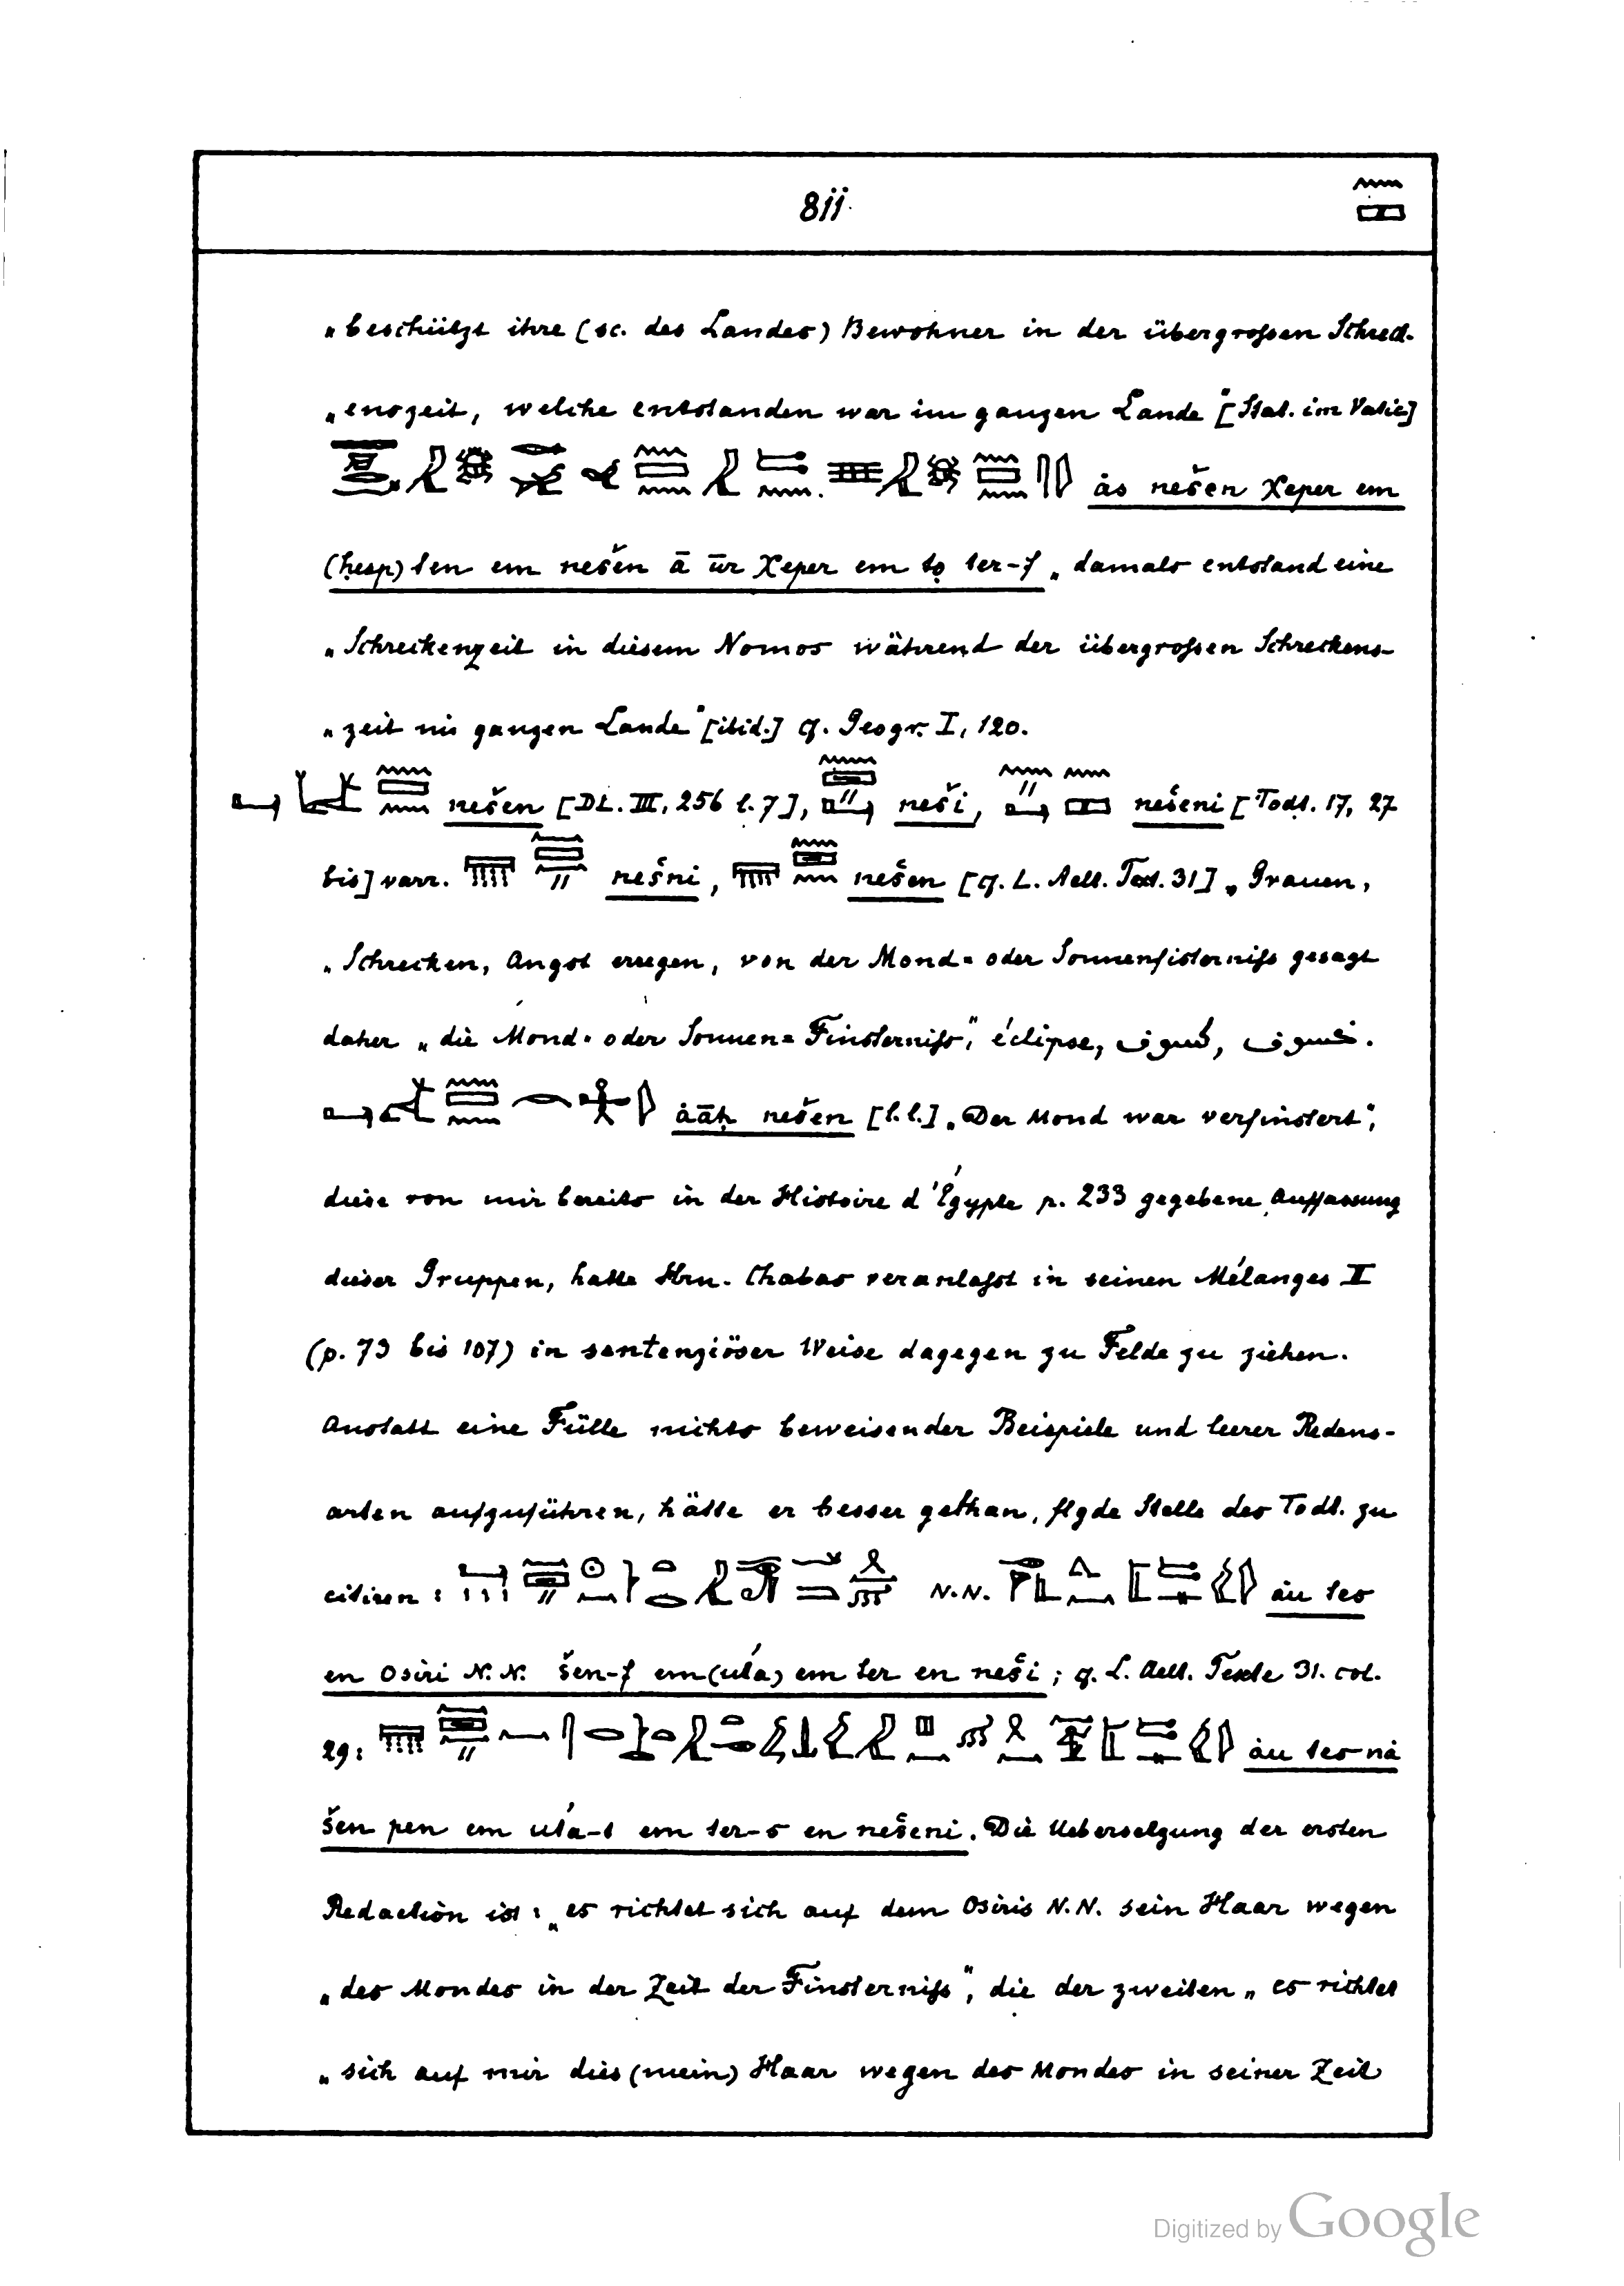 811
„beschützt ihre (sc. des Landes) Bewohner in der übergrossen Schreck-
„enszeit, welche entstanden war im ganzen Lande" [Stat. im Vatic]
ȧs nešen χeper em
(ḥesp) ten em nešen ā ūr χeper em to ter-f „damals entstand eine
„Schreckenzeit in diesem Nomos während der übergrossen Schreckens-
„zeit im ganzen Lande" [ibid.] cf. Geogr. I, 120.
nešen [DL. III, 256 l. 7], neši, nešeni [Todt. 17, 27
bis] varr. nešni, nešen [cf. L. Aelt. Text. 31] „Grauen,
„Schrecken, Angst erregen, von der Mond- oder Sonnenfisterniss gesagt
daher „die Mond- oder Sonnen-Finsterniss", éclipse, كسوف, خسوف.
ȧāḥ nešen [l. l.] „Der Mond war verfinstert",
diese von mir bereits in der Histoire d'Égypte p. 233 gegebene Auffassung
dieser Gruppen, hatte Hrn. Chabas veranlasst in seinen Mélanges II
(p. 73 bis 107) in sentenziöser Weise dagegen zu Felde zu ziehen.
Anstatt eine Fülle nichts beweisender Beispiele und leerer Redens-
arten aufzuführen, hätte er besser gethan, flgde Stelle des Todt. zu
citiren: N.N. ȧu tes
en Osiri N.N. šen-f em (uťa) em ter en neši; cf. L. Aelt. Texte 31. col.
29: ȧu tes-nȧ
šen pen em uťa-t em ter-s en nešeni. Die Uebersetzung der ersten
Redaction ist: „es richtet sich auf dem Osiris N.N. sein Haar wegen
„des Mondes in der Zeit der Finsterniss", die der zweiten „es richtet
„sich auf mir dies (mein) Haar wegen des Mondes in seiner Zeit
Digitized by Google